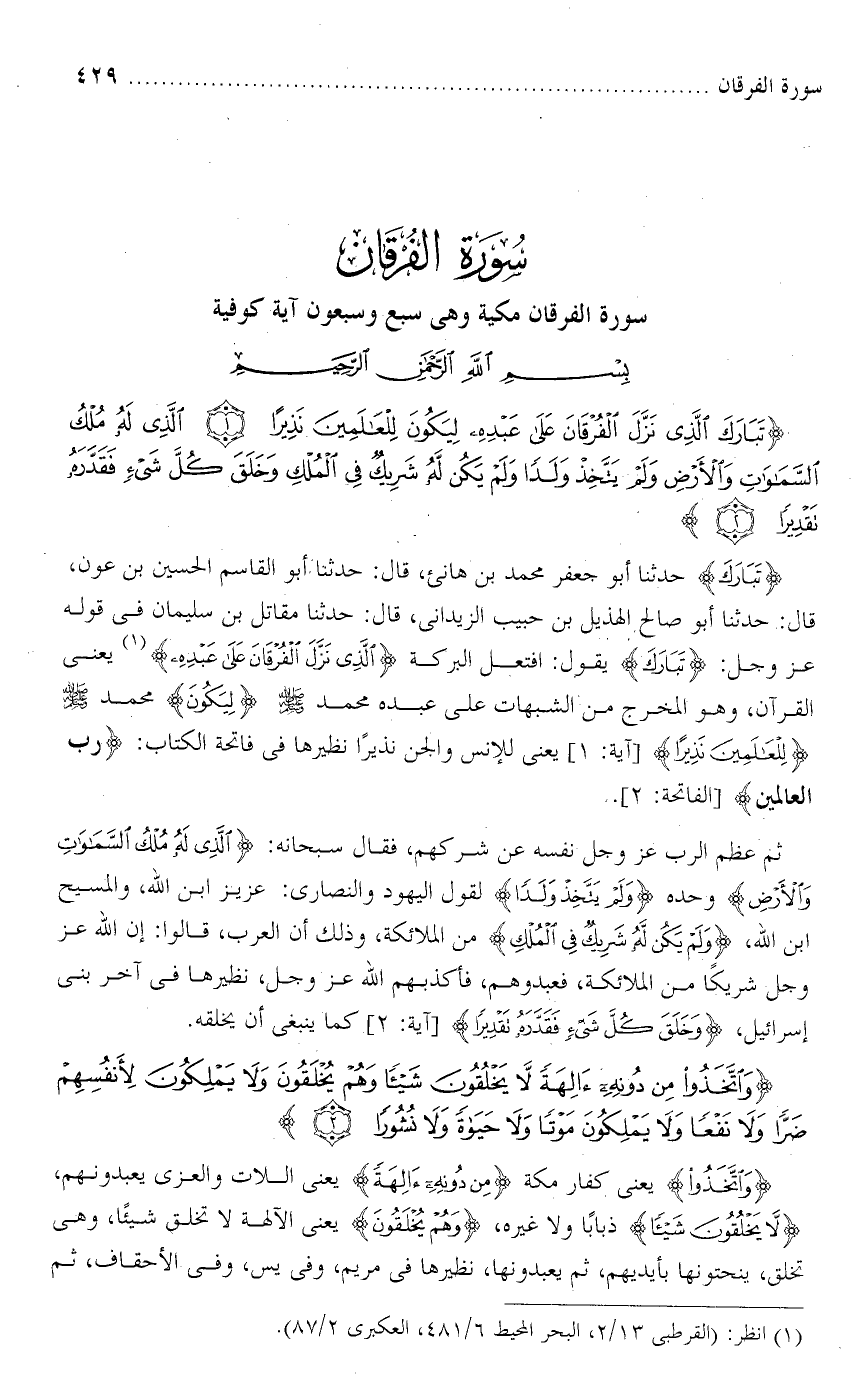 سورة الفرقان ........................................................................ ٤٢٩
سُورَة الفُرقَان
سورة الفرقان مكية وهى سبع وسبعون آية كوفية
بِسْمِ اللَّهِ الرَّحْمَٰنِ الرَّحِيمِ
﴿تَبَارَكَ ٱلَّذِى نَزَّلَ ٱلْفُرْقَانَ عَلَىٰ عَبْدِهِۦ لِيَكُونَ لِلْعَـٰلَمِينَ نَذِيرًا ۝١ ٱلَّذِى لَهُۥ مُلْكُ
ٱلسَّمَـٰوَٰتِ وَٱلْأَرْضِ وَلَمْ يَتَّخِذْ وَلَدًا وَلَمْ يَكُن لَّهُۥ شَرِيكٌ فِى ٱلْمُلْكِ وَخَلَقَ كُلَّ شَىْءٍ فَقَدَّرَهُۥ
نَقْدِيرًا ۝٢﴾
﴿تَبَارَكَ﴾ حدثنا أبو جعفر محمد بن هانئ، قال: حدثنا أبو القاسم الحسين بن عون،
قال: حدثنا أبو صالح الهذيل بن حبيب الزيدانى، قال: حدثنا مقاتل بن سليمان فى قوله
عز وجل: ﴿تَبَارَكَ﴾ يقول: افتعل البركة ﴿ٱلَّذِى نَزَّلَ ٱلْفُرْقَانَ عَلَىٰ عَبْدِهِۦ﴾(١) يعنى
القرآن، وهو المخرج من الشبهات على عبده محمد ﷺ ﴿لِيَكُونَ﴾ محمد ﷺ
﴿لِلْعَـٰلَمِينَ نَذِيرًا﴾ [آية: ١] يعنى للإنس والجن نذيرًا نظيرها فى فاتحة الكتاب: ﴿رب
العالمين﴾ [الفاتحة: ٢].
ثم عظم الرب عز وجل نفسه عن شركهم، فقال سبحانه: ﴿ٱلَّذِى لَهُۥ مُلْكُ ٱلسَّمَـٰوَٰتِ
وَٱلْأَرْضِ﴾ وحده ﴿وَلَمْ يَتَّخِذْ وَلَدًا﴾ لقول اليهود والنصارى: عزير ابن الله، والمسيح
ابن الله، ﴿وَلَمْ يَكُن لَّهُۥ شَرِيكٌ فِى ٱلْمُلْكِ﴾ من الملائكة، وذلك أن العرب، قالوا: إن الله عز
وجل شريكًا من الملائكة، فعبدوهم، فأكذبهم الله عز وجل، نظيرها فى آخر بنى
إسرائيل، ﴿وَخَلَقَ كُلَّ شَىْءٍ فَقَدَّرَهُۥ نَقْدِيرًا﴾ [آية: ٢] كما ينبغى أن يخلقه.
﴿وَٱتَّخَذُوا۟ مِن دُونِهِۦٓ ءَالِهَةً لَّا يَخْلُقُونَ شَيْـًٔا وَهُمْ يُخْلَقُونَ وَلَا يَمْلِكُونَ لِأَنفُسِهِمْ
ضَرًّا وَلَا نَفْعًا وَلَا يَمْلِكُونَ مَوْتًا وَلَا حَيَوٰةً وَلَا نُشُورًا ۝٣﴾
﴿وَٱتَّخَذُوا۟﴾ يعنى كفار مكة ﴿مِن دُونِهِۦٓ ءَالِهَةً﴾ يعنى اللات والعزى يعبدونهم،
﴿لَّا يَخْلُقُونَ شَيْـًٔا﴾ ذبابًا ولا غيره، ﴿وَهُمْ يُخْلَقُونَ﴾ يعنى الآلهة لا تخلق شيئًا، وهى
تخلق، ينحتونها بأيديهم، ثم يعبدونها، نظيرها فى مريم، وفى يس، وفى الأحقاف، ثم
(١) انظر: (القرطبى ٢/١٣، البحر المحيط ٤٨١/٦، العكبرى ٨٧/٢).